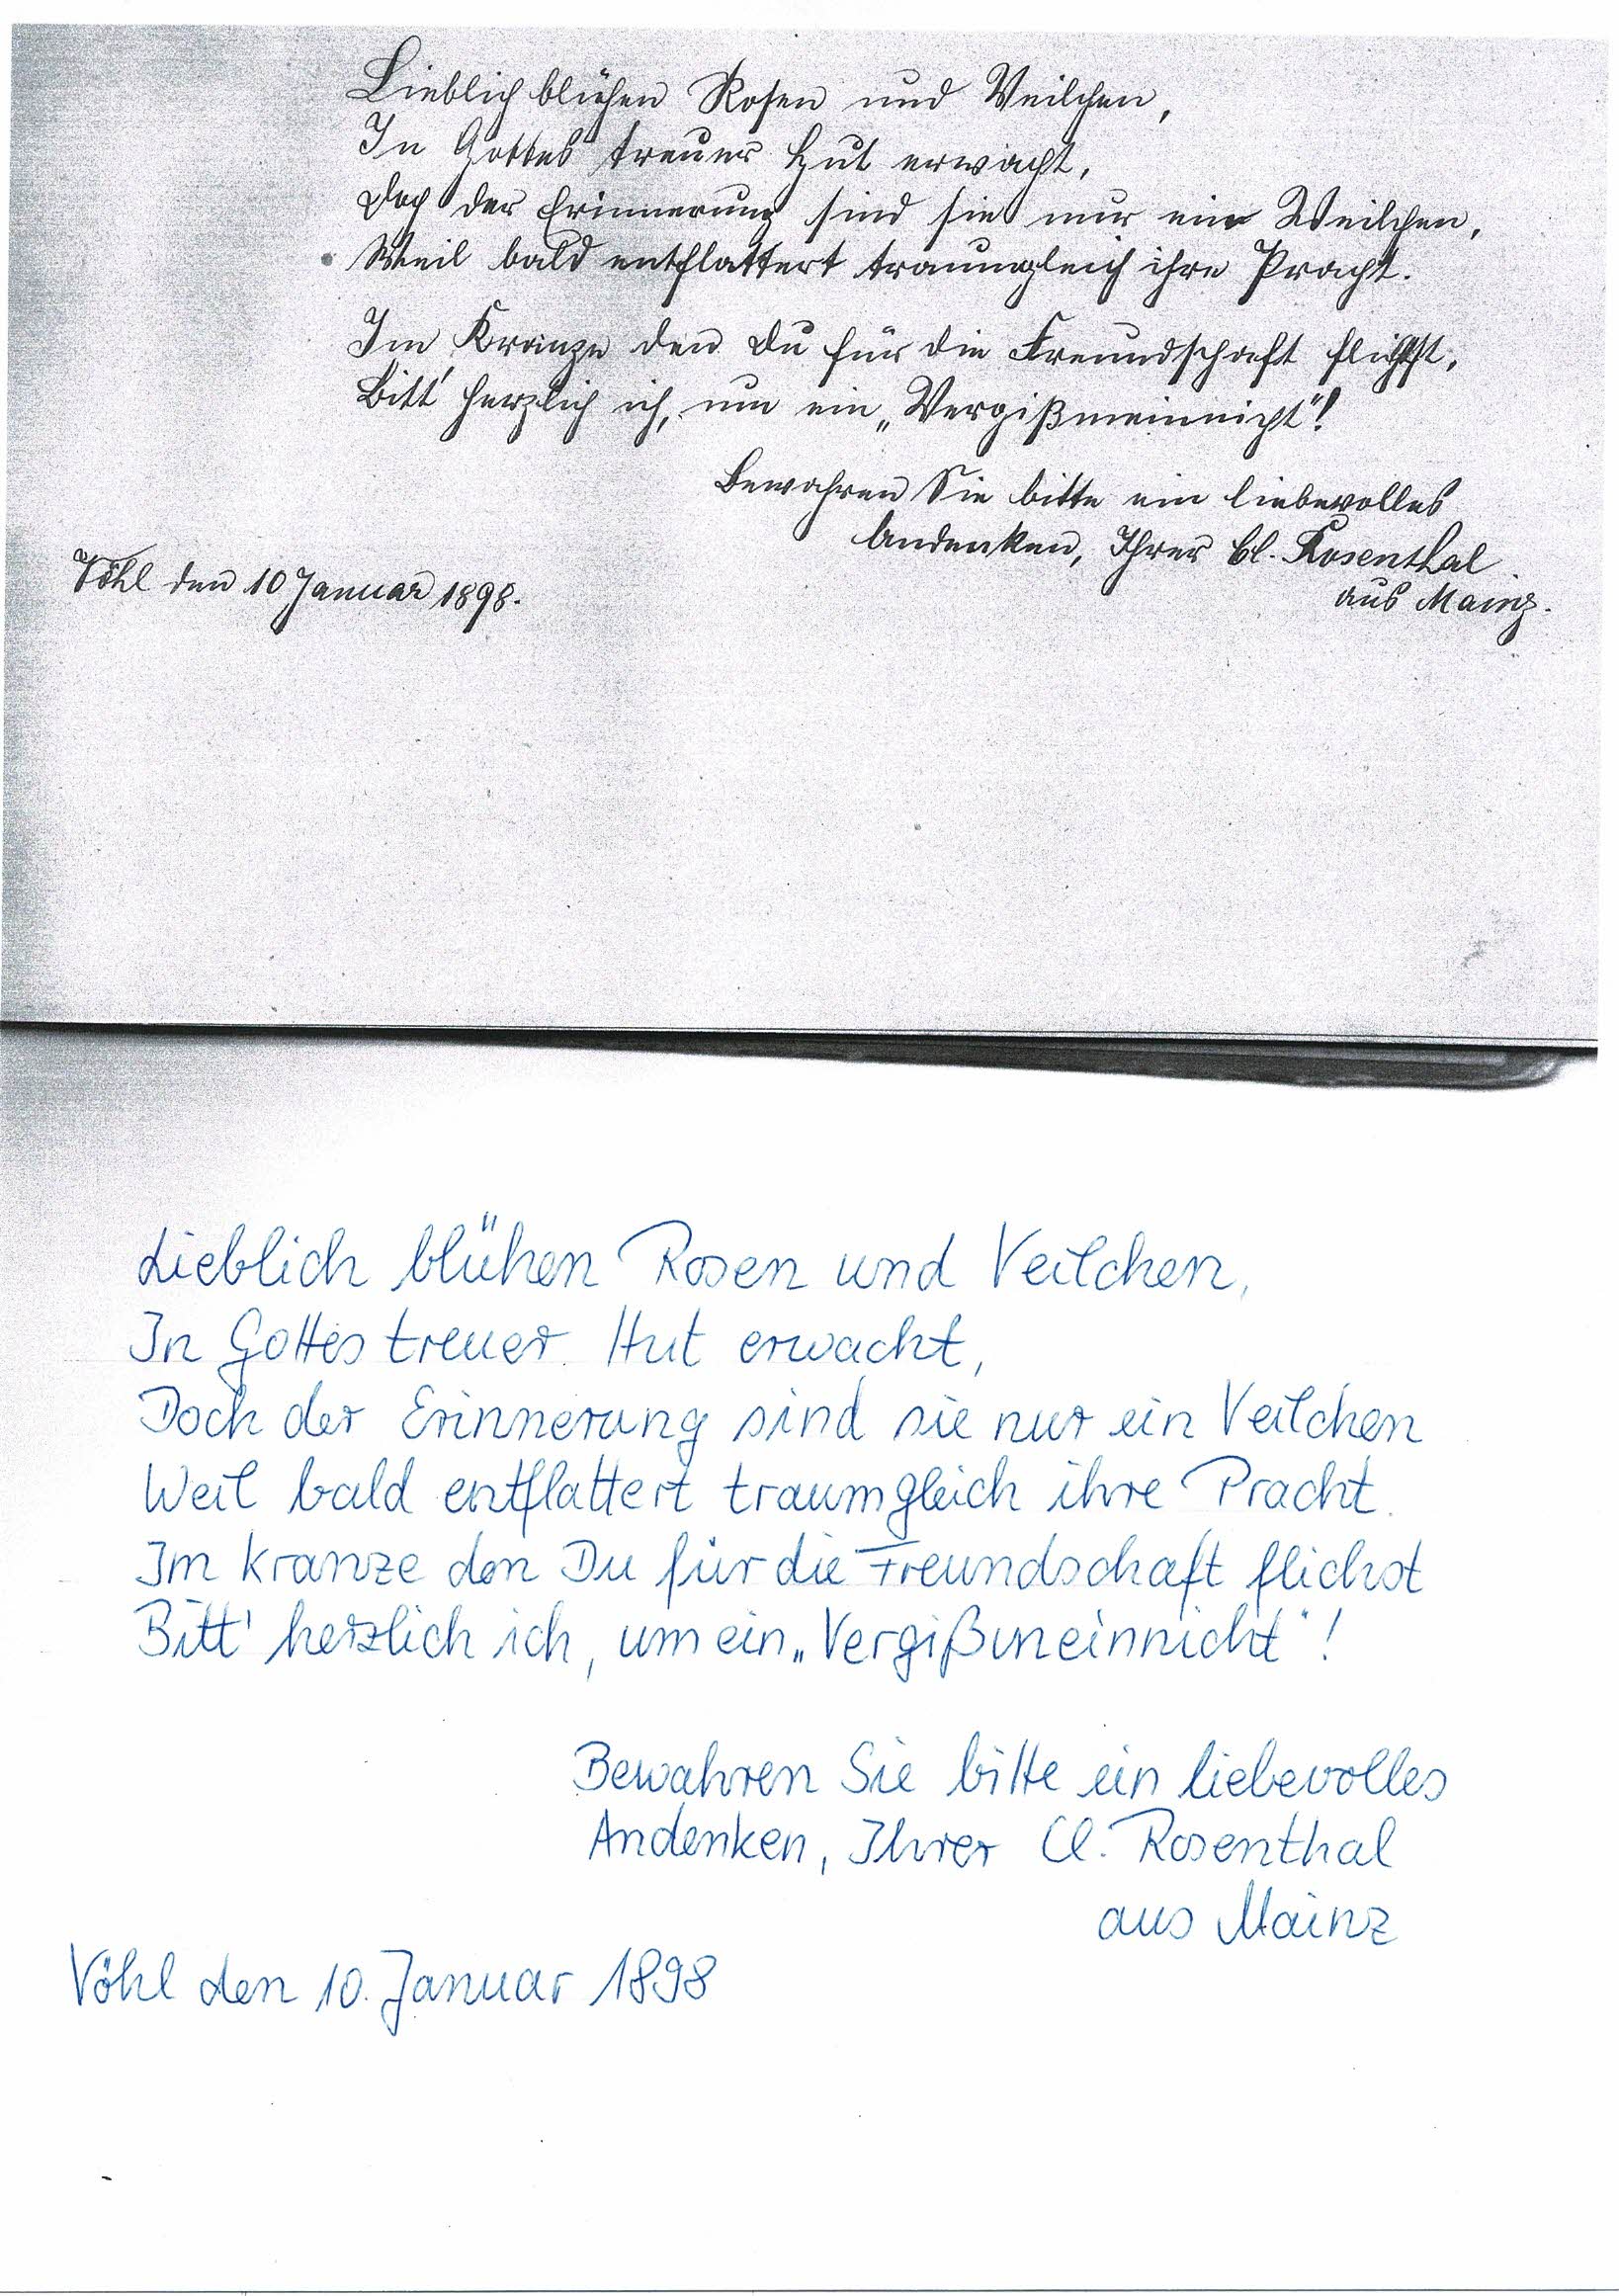 Lieblich blühen Rosen und Veilchen,
In Gottes treuer Hut erwacht,
Doch der Erinnerung sind sie nur ein Weilchen,
Weil bald entflattert traumgleich ihre Pracht.
Im Kranze den Du für die Freundschaft flichst,
Bitt' herzlich ich, um ein „Vergißmeinnicht"!
Bewahren Sie bitte ein liebevolles
Andenken, Ihrer Cl. Rosenthal
aus Mainz.
Vöhl den 10 Januar 1898.
Lieblich blühen Rosen und Veilchen,
In Gottes treuer Hut erwacht,
Doch der Erinnerung sind sie nur ein Veilchen
Weil bald entflattert traumgleich ihre Pracht.
Im Kranze den Du für die Freundschaft flichst
Bitt' herzlich ich, um ein „Vergißmeinnicht"!
Bewahren Sie bitte ein liebevolles
Andenken, Ihrer Cl. Rosenthal
aus Mainz
Vöhl den 10. Januar 1898